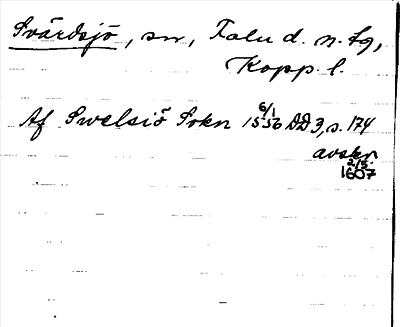 Svärdsjö, sn, Falu d. n. tg,
Kopp. l.
Af Swelsiö Sokn 6/1 1556 DD 3, s. 174
avskr.
2/5
1607